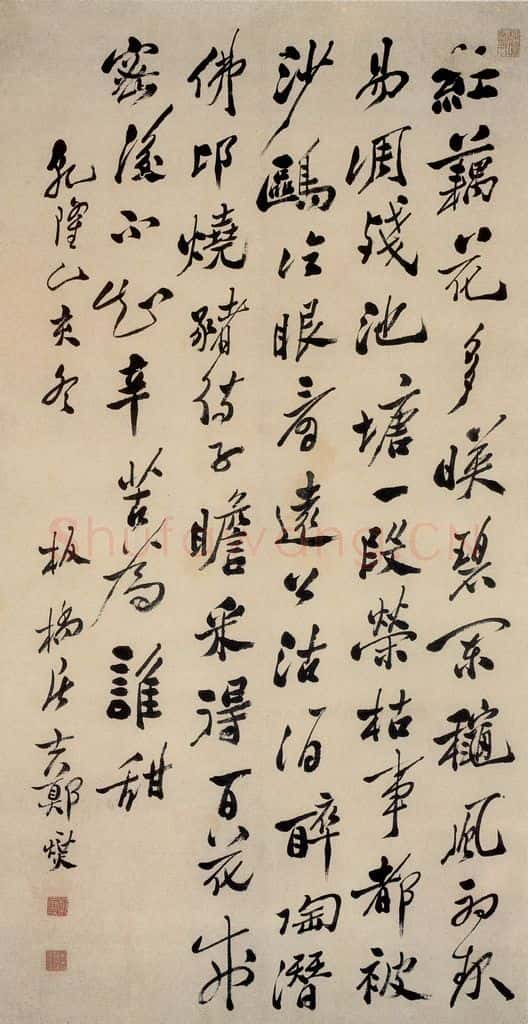 紅藕花多暎碧闌穐風初起
易凋殘池塘一段榮枯事都被
沙鷗冷眼看遠公沽酒醉陶潛
佛印燒豬待子瞻采得百花成
密後不知辛苦為誰甜
乾隆乙亥冬 板橋居士鄭燮
Shufawang.CN